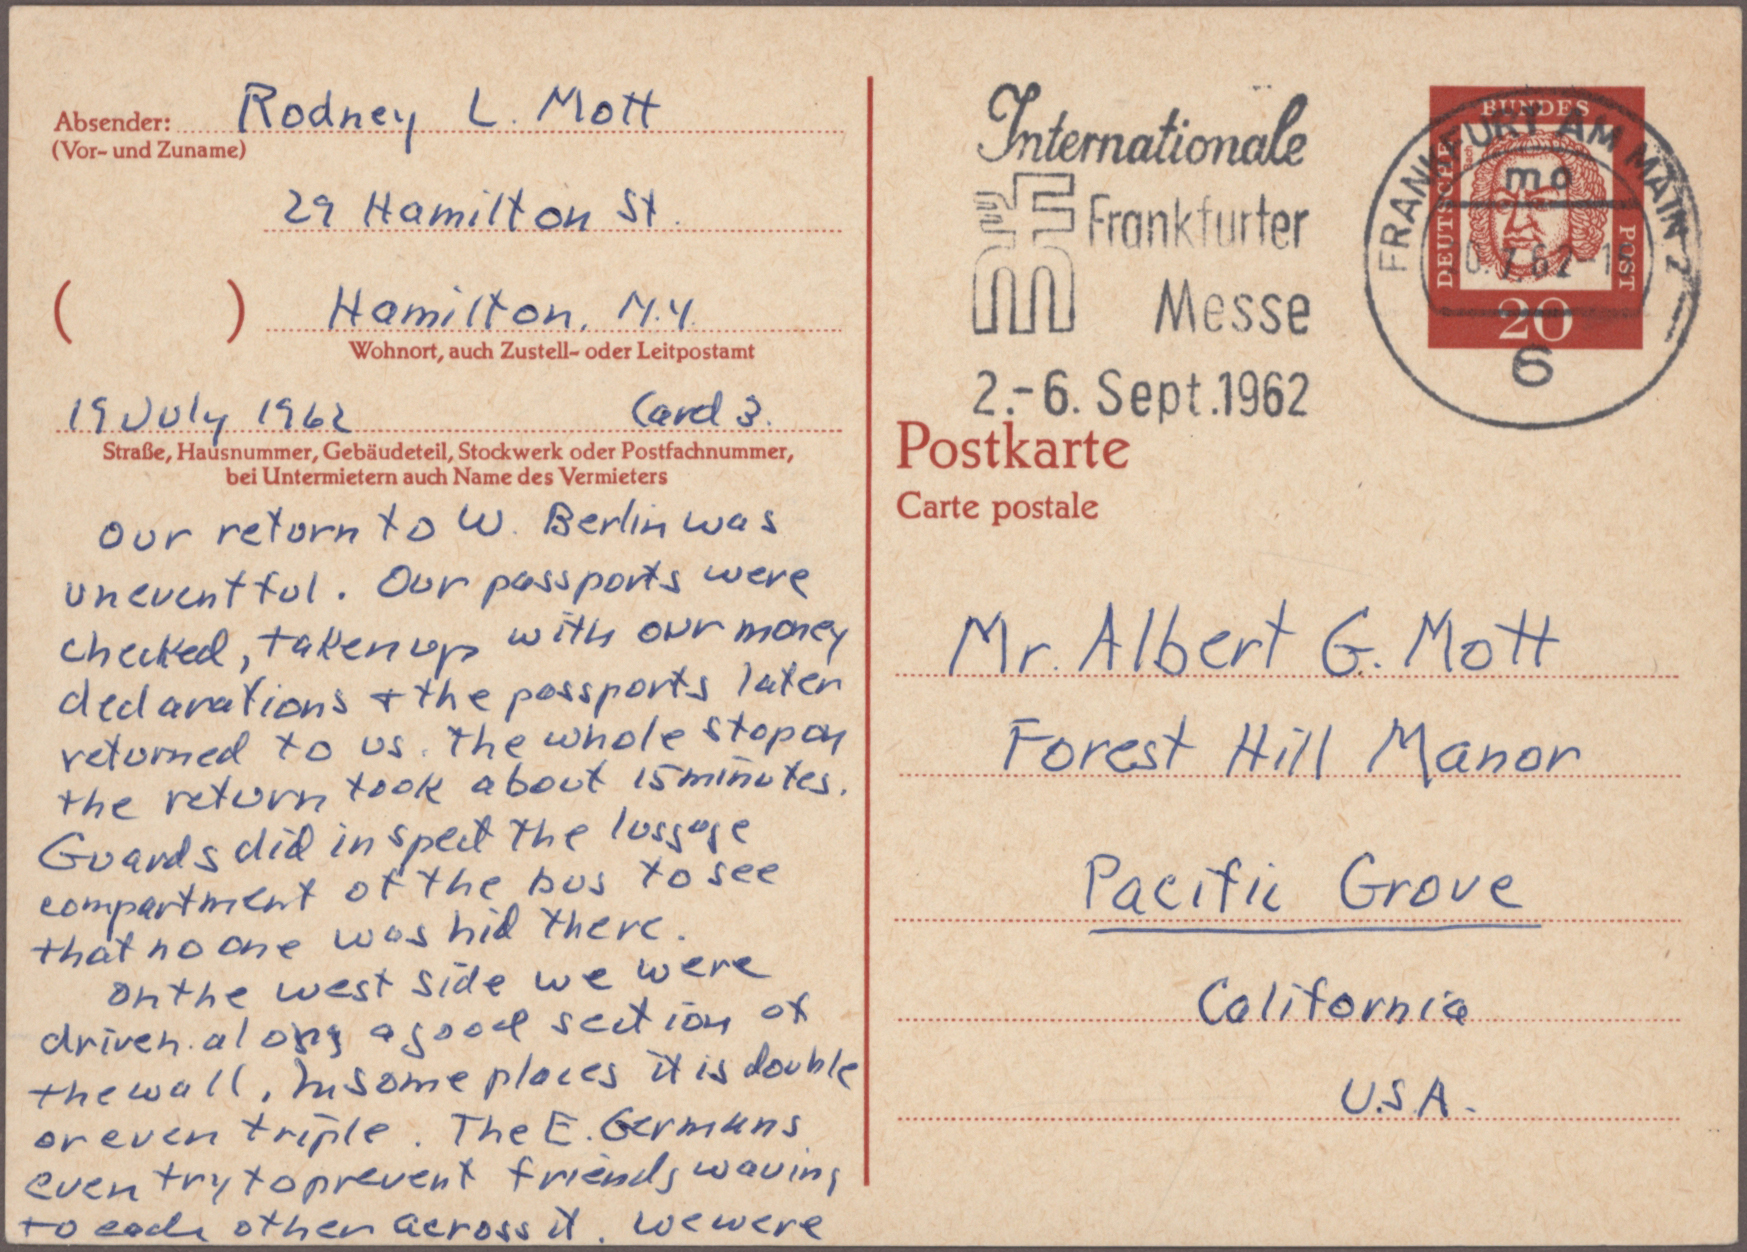 Absender: Rodney L. Mott
(Vor- und Zuname)
29 Hamilton St.
( ) Hamilton, N.Y.
Wohnort, auch Zustell- oder Leitpostamt
19 July 1962 Card 3.
Straße, Hausnummer, Gebäudeteil, Stockwerk oder Postfachnummer,
bei Untermietern auch Name des Vermieters
Our return to W. Berlin was
uneventful. Our passports were
checked, taken up with our money
declarations + the passports later
returned to us. The whole stop on
the return took about 15 minutes.
Guards did inspect the luggage
compartment of the bus to see
that no one was hid there.
On the west side we were
driven along a good section of
the wall. In some places it is double
or even triple. The E. Germans
even try to prevent friends waving
to each other across it. We were
Internationale
Frankfurter
Messe
2.-6. Sept. 1962
FRANKFURT AM MAIN 2
mo
0.7.62-1
6
DEUTSCHE BUNDES POST
Bach
20
Postkarte
Carte postale
Mr. Albert G. Mott
Forest Hill Manor
Pacific Grove
California
U.S.A.